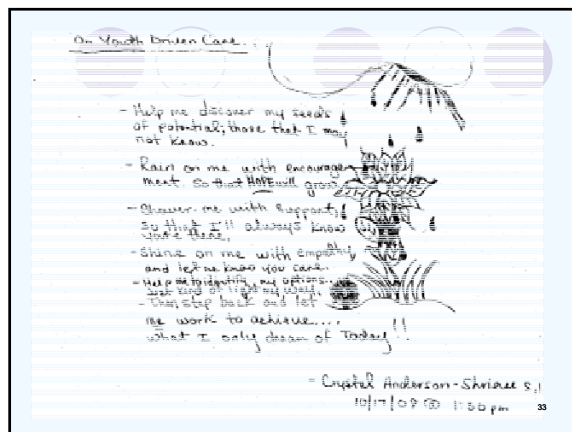 On Youth Driven Care...
- Help me discover my seeds
of potential; those that I may
not know.
- Rain on me with encourage-
ment. So that HOPE will grow
- Shower me with support,
So that I'll always know
you're there.
- Shine on me with empathy
and let me know you care.
- Help me to identify my options..
Just kind of light my way.
- Then step back and let
me work to achieve....
what I only dream of Today!!
- Crystal Anderson-
10/17/09 @ 1:30 pm
33